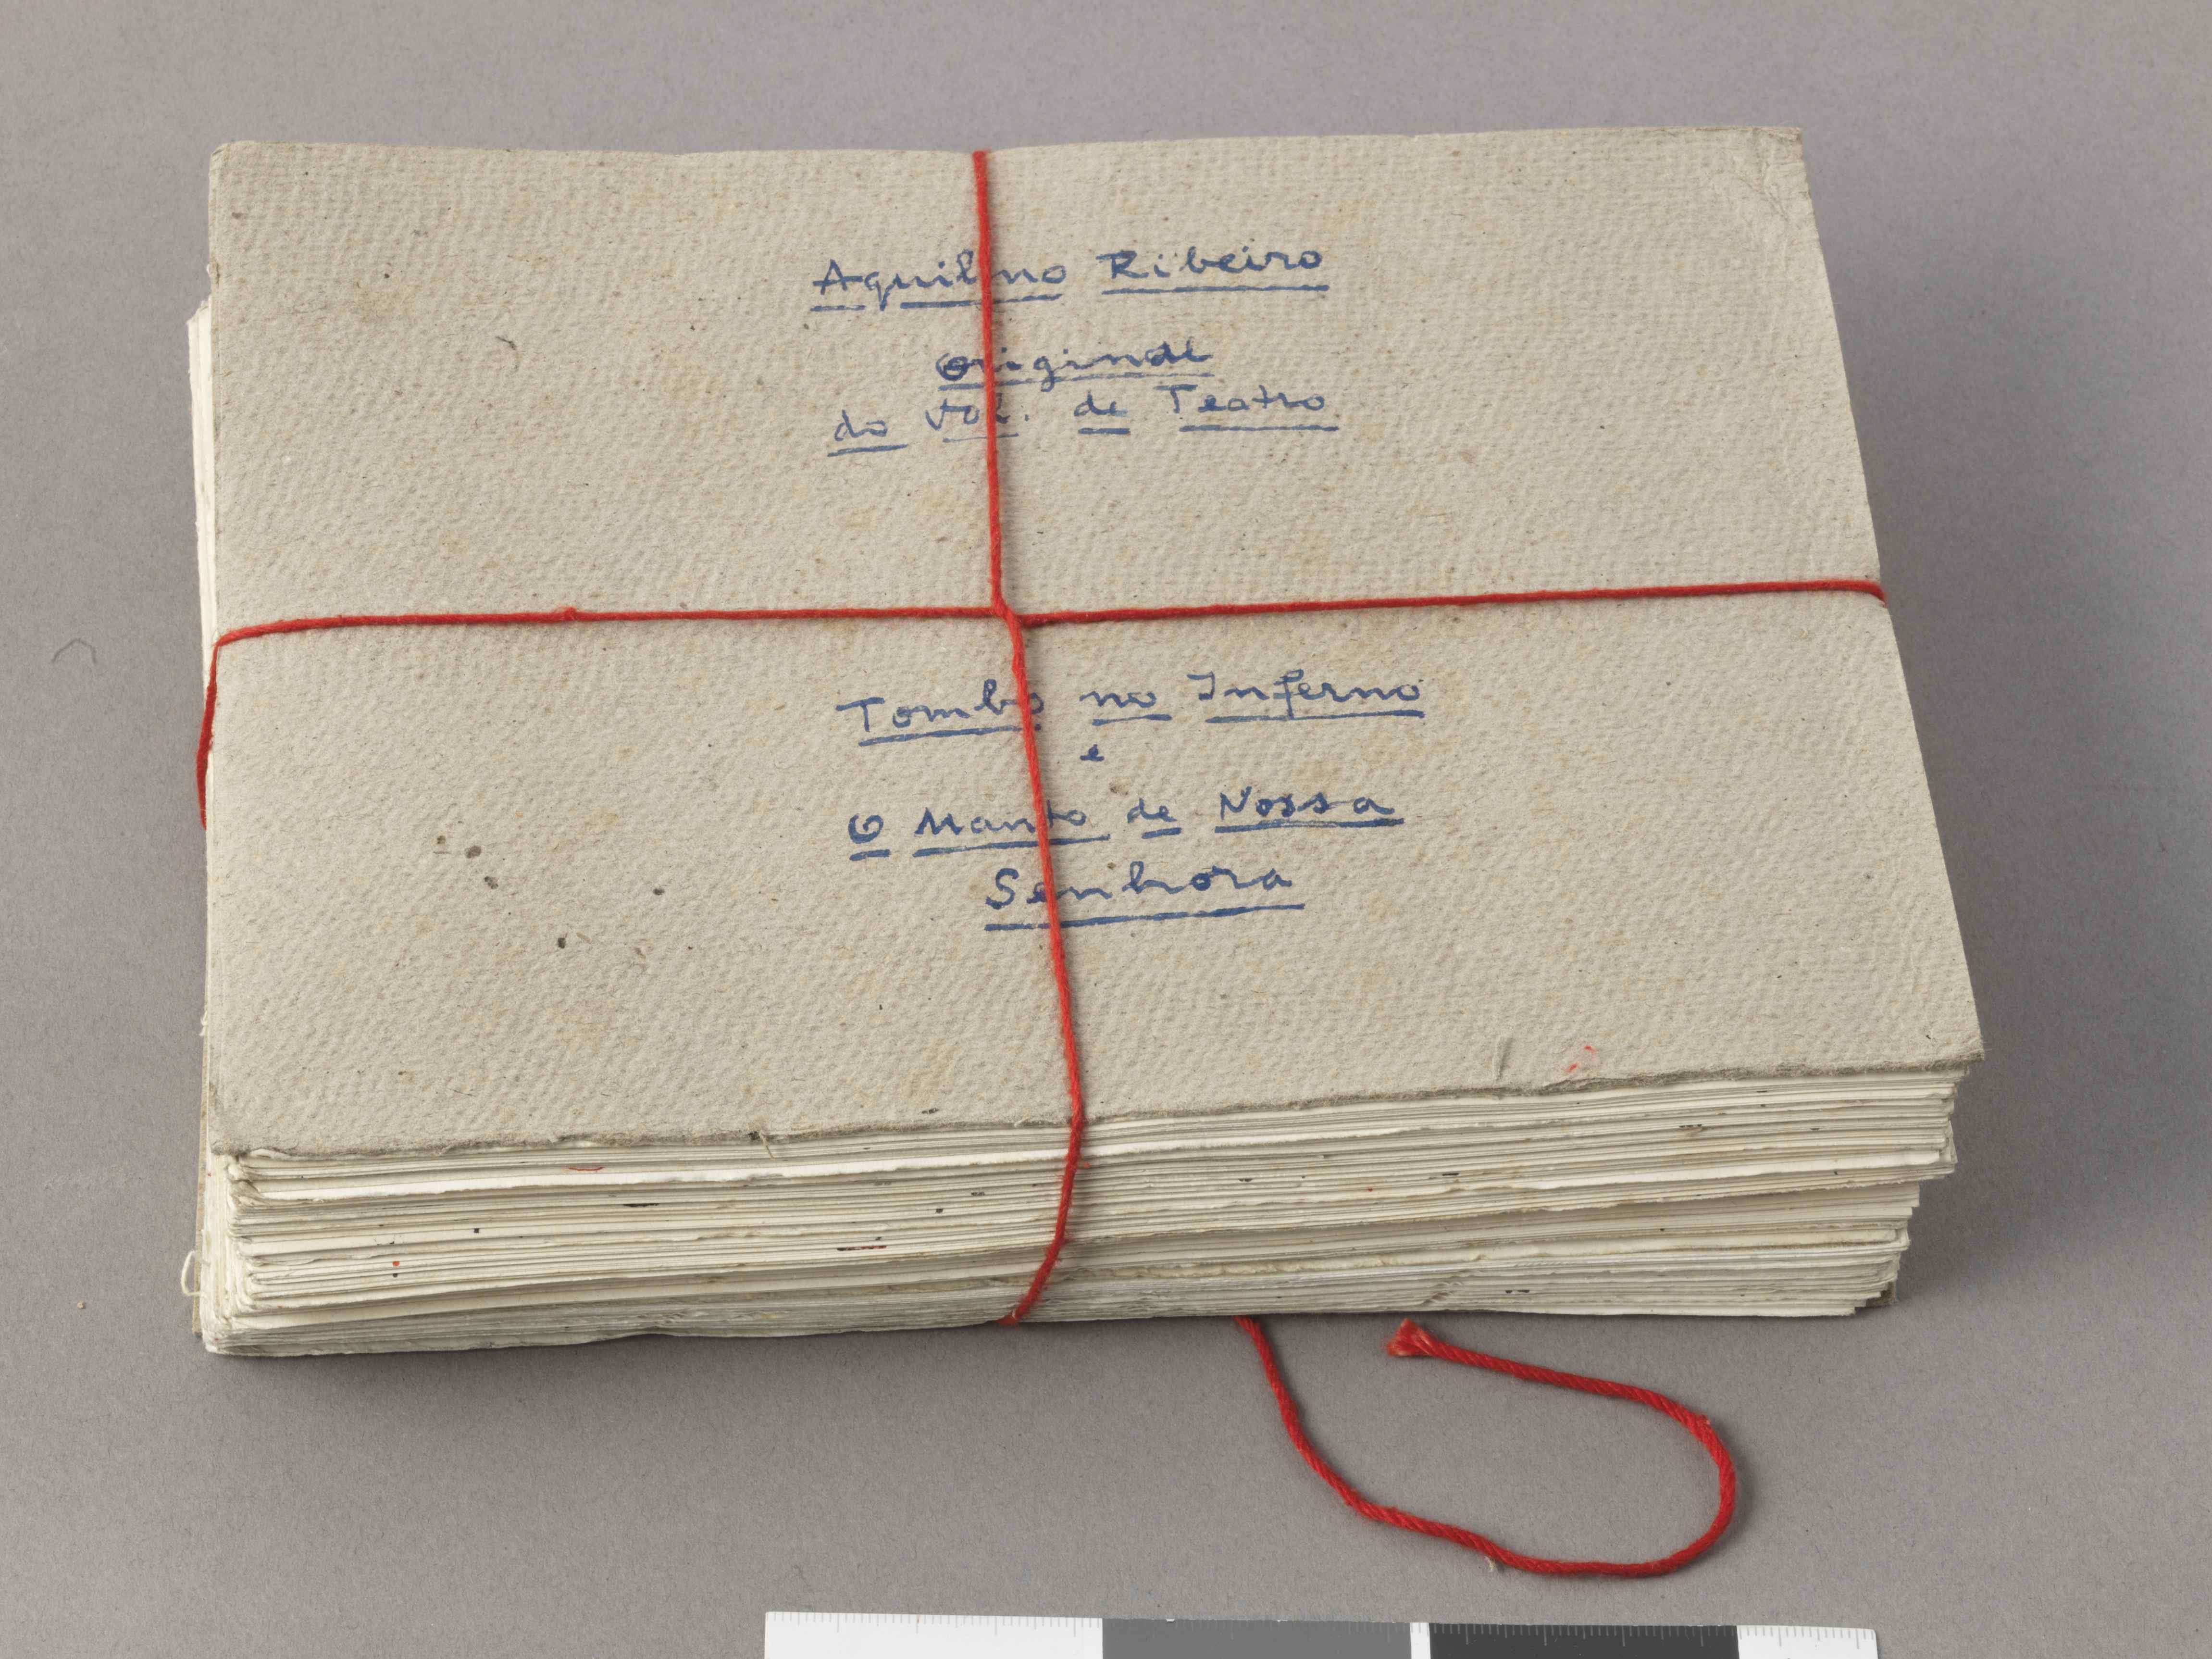 Aquilino Ribeiro
Original
do Vol. de Teatro
Tombo no Inferno
e
O Manto de Nossa
Senhora